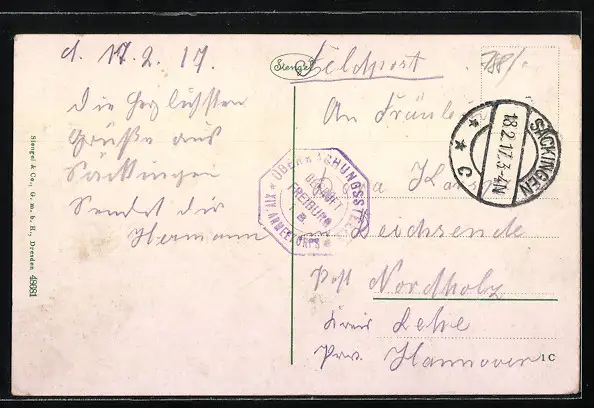 d. 17.2.17.
Die herzlichsten
Grüße aus
Säckingen
Sendet dir
Hermann
Stengel & Co., G. m. b. H., Dresden 48681
Stengel
Feldpost
An Fräulein
Leichsende
Post Nordholz
Kreis Lehe
Prov. Hannover
1 C
ÜBERWACHUNGSSTELLE
GEPRÜFT
FREIBURG
i. B.
XIV. ARMEEKORPS
SÄCKINGEN
18.2.17.3-4N
* C *